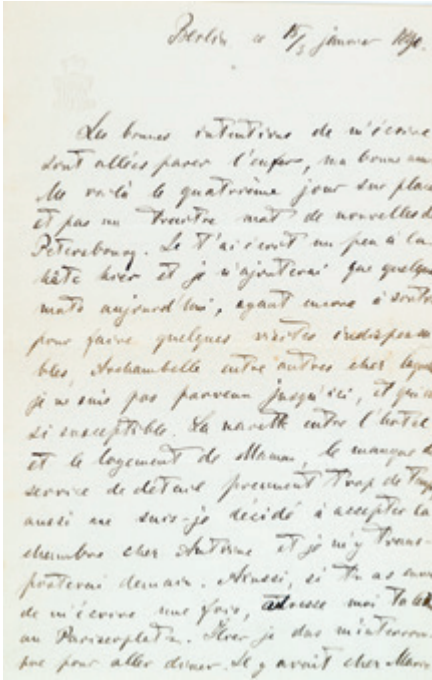 Berlin ce 15/3 janvier 1890.
Les bonnes intentions de m'écrire
sont allées paver l'enfer, ma bonne am
Me voilà le quatrième jour sur place
et pas un traître mot de nouvelles d
Pétersbourg. Je t'ai écrit un peu à la
hâte hier et je n'ajouterai que quelqu
mots aujourd'hui, ayant encore à sortir
pour faire quelques visites indispensa
bles, entre autres chez
je ne suis pas parvenu jusqu'ici, et qui
si susceptible. La navette entre l'hôtel
et le logement de Maman, le manque d
service de détail prennent trop de temps
aussi me suis-je décidé à accepter la
chambre chez Antoine et je m'y trans-
porterai demain. Aussi, si tu as envie
de m'écrire une fois, adresse moi ta lett
au Pariserplatz. Hier je dus m'interrom
pre pour aller dîner. Il y avait chez Marie